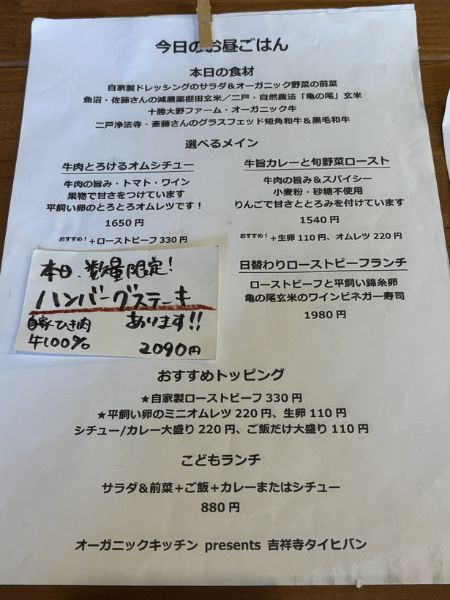 今日のお昼ごはん
本日の食材
自家製ドレッシングのサラダ＆オーガニック野菜の前菜
魚沼・佐藤さんの減農薬棚田玄米／二戸・自然農法「亀の尾」玄米
十勝大野ファーム・オーガニック牛
二戸浄法寺・斎藤さんのグラスフェッド短角和牛＆黒毛和牛
選べるメイン
牛肉とろけるオムシチュー
牛肉の旨み・トマト・ワイン
果物で甘さをつけています
平飼い卵のとろとろオムレツです！
1650 円
おすすめ！＋ローストビーフ 330 円
牛旨カレーと旬野菜ロースト
牛肉の旨み＆スパイシー
小麦粉・砂糖不使用
りんごで甘さととろみを付けています
1540 円
おすすめ！＋生卵 110 円、オムレツ 220 円
本日、数量限定！
ハンバーグステーキ
あります!!
自家ひき肉
牛100%
2090円
日替わりローストビーフランチ
ローストビーフと平飼い錦糸卵
亀の尾玄米のワインビネガー寿司
1980 円
おすすめトッピング
★自家製ローストビーフ 330 円
★平飼い卵のミニオムレツ 220 円、生卵 110 円
シチュー/カレー大盛り 220 円、ご飯だけ大盛り 110 円
こどもランチ
サラダ＆前菜＋ご飯＋カレーまたはシチュー
880 円
オーガニックキッチン presents 吉祥寺タイヒバン